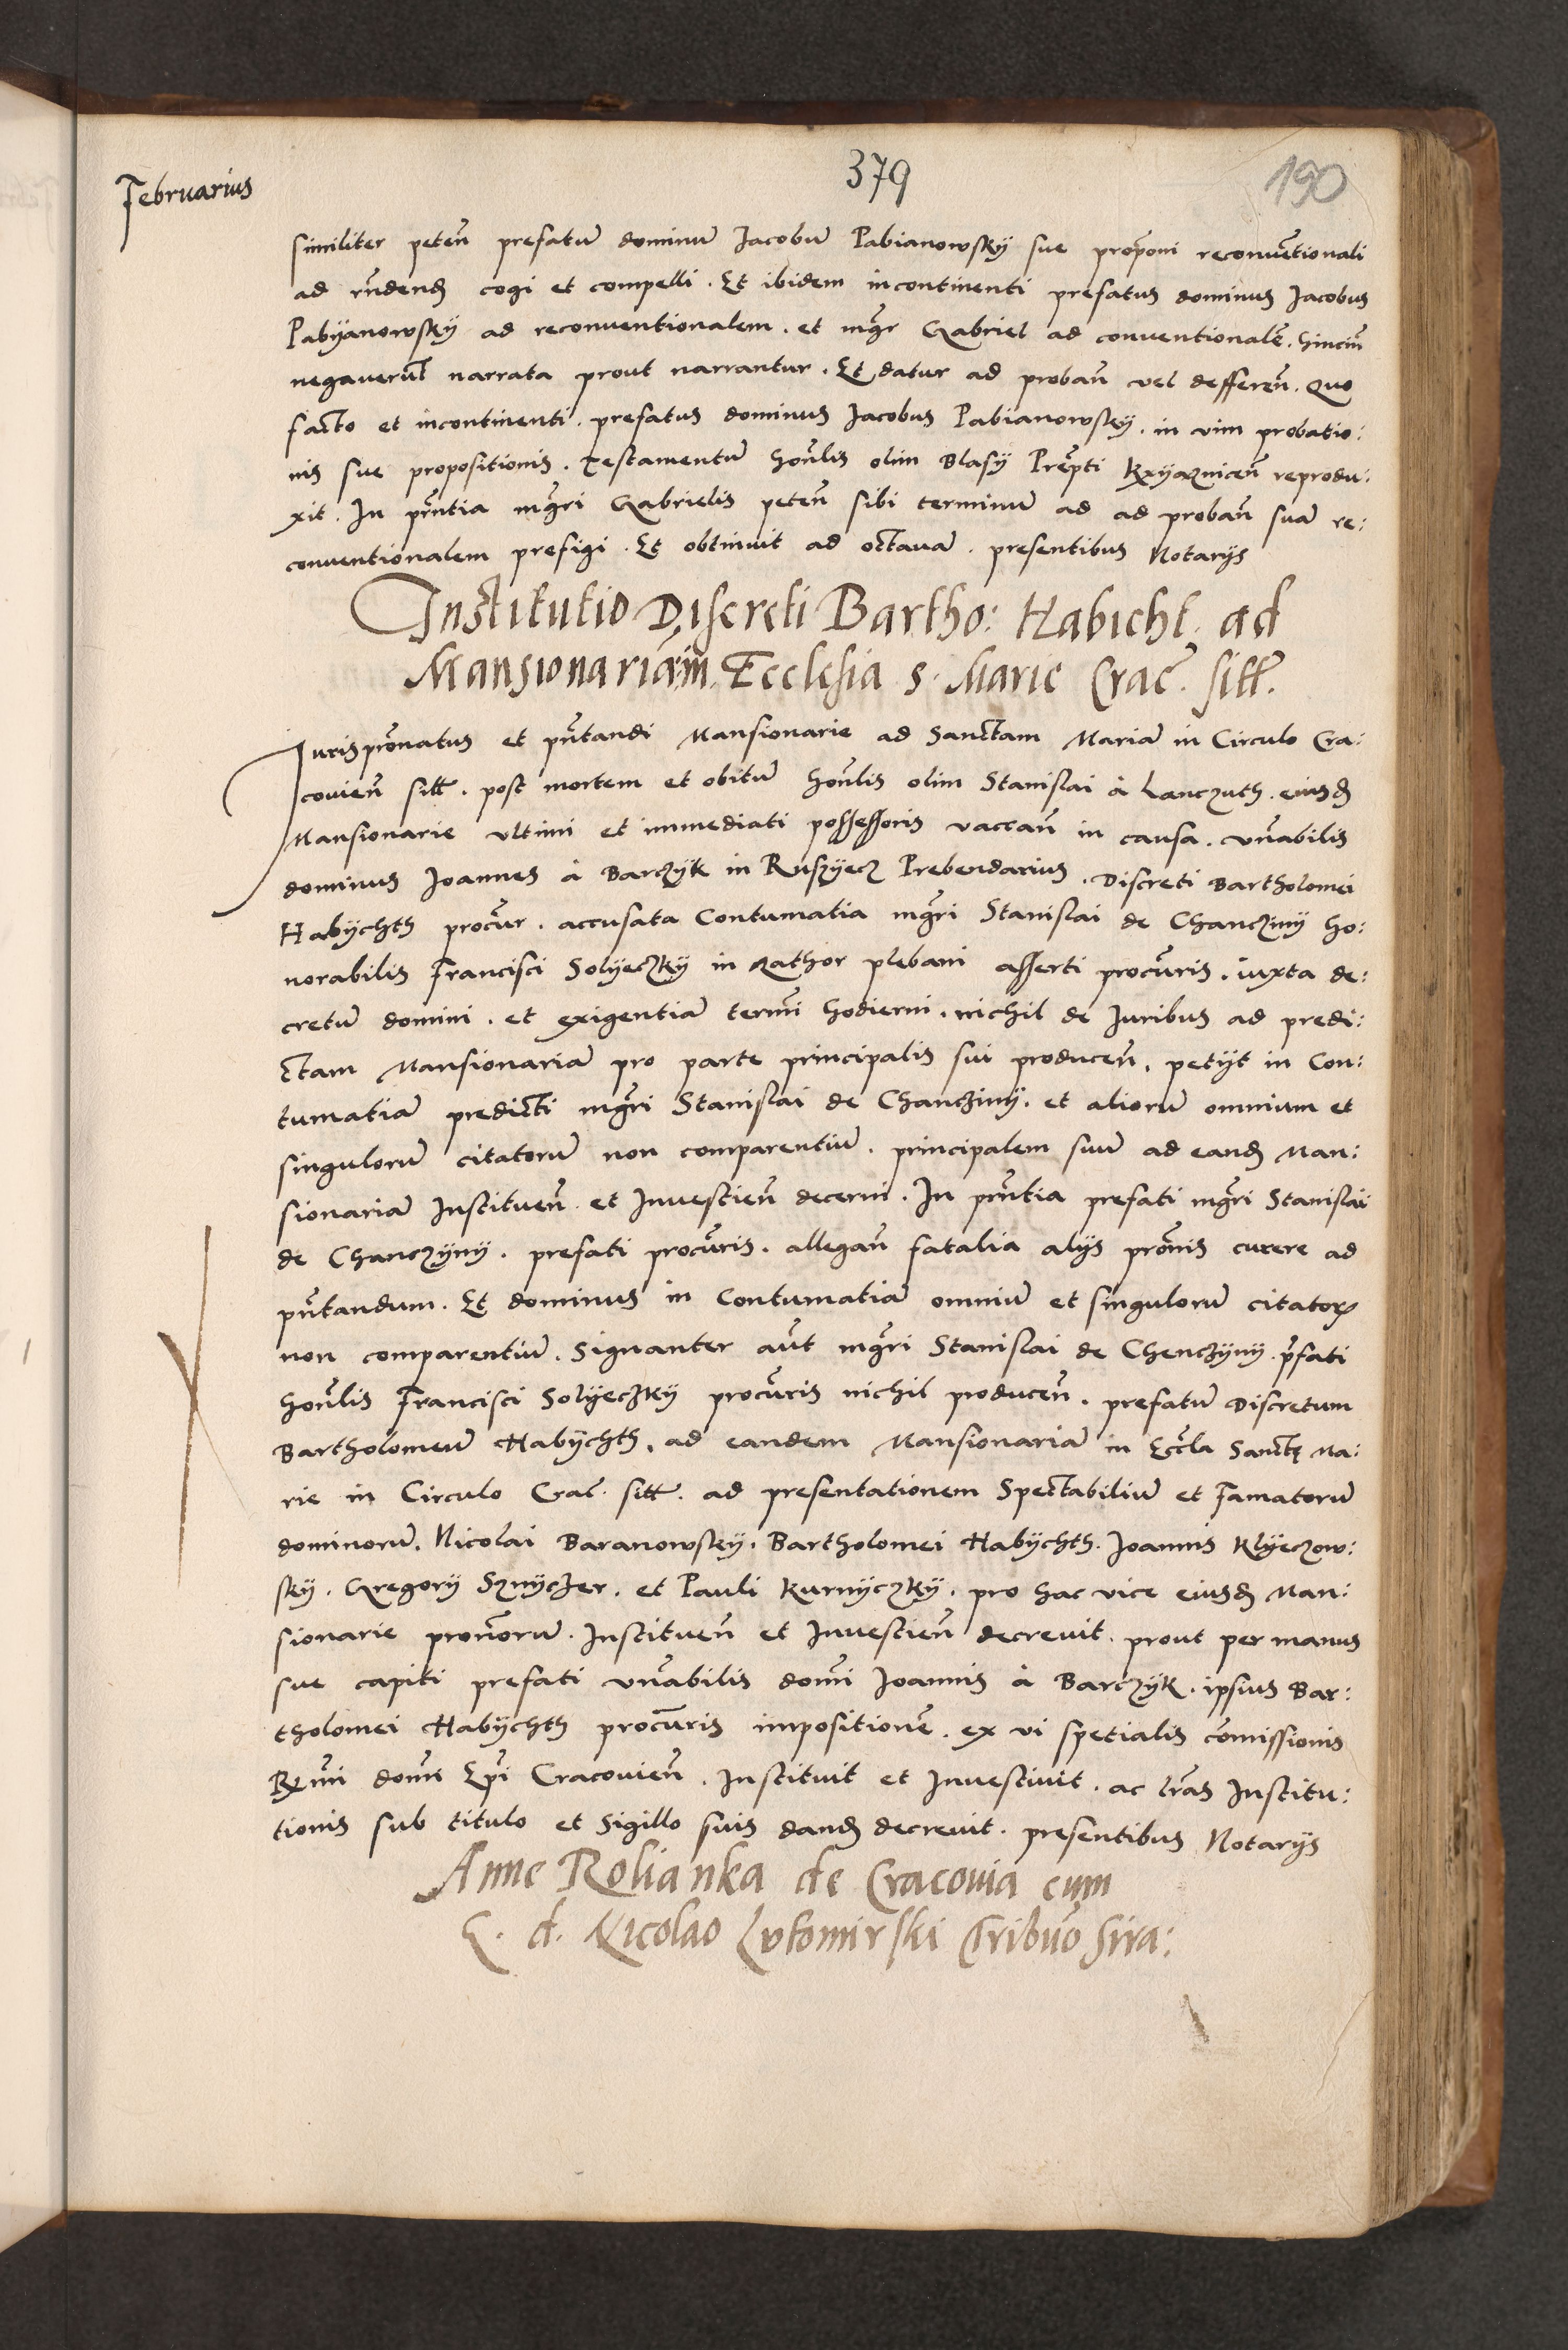 Februarius
379
190
similiter peteñ prefatū dominū Jacobū Pabianowsky sue proponi reconvētionali
ad rñdend cogi et compelli. Et ibidem incontinenti prefatus dominus Jacobus
Pabyanowsky ad reconventionalem. et mgr Gabriel ad conventionalē. hinciñ
negaverūt narrata prout narrantur. Et datur ad probañ vel defferen̄. Quo
facto et incontinenti. prefatus dominus Jacobus Pabianowsky. in vim probatio:
nis sue propositionis. Testamentū hoñlis olim Blasy Prepti Kxyaznicen̄ reprodu:
xit. In pñtia mgri Gabrielis peten̄ sibi terminū ad ad probañ suā re:
conventionalem prefigi. Et obtinuit ad octavā. presentibus Notarys
Institutio Discreti Bartho: Habicht. ad
Mansionariā in Ecclesia S. Marie Crac̄. sitt̄.
Jurisprōnatus et pñtandi Mansionarie ad Sanctam Mariā in Circulo Cra:
covien̄ sitt̄. post mortem et obitū hoñlis olim Stanislai à Lanczuth. eiusd
Mansionarie ultimi et immediati possessoris vaccañ in causa. vñabilis
dominus Joannes à Barczyk in Ruszyecz Prebendarius. Discreti Bartholomei
Habychth procur̄. accusata Contumatia mgri Stanislai de Chancziny ho:
norabilis Francisci Solyeczky in Rathor plebani asserti procūris. iuxta de:
cretū domini. et exigentiā termi hodierni. nichil de Juribus ad predi:
ctam Mansionariā pro parte principalis sui producen̄. petyt in Con:
tumatiā predicti mgri Stanislai de Chancziny. et aliorū omnium et
singulorū citatorū non comparentiū. principalem suū ad eand Man:
sionariā Instituen̄ et Investien̄ decerni. In pñtia prefati mgri Stanislai
de Chanczyny. prefati procūris. allegañ fatalia alys prōnis currere ad
pñtandum. Et dominus in Contumatiā omniū et singulorū citator
non comparentiū. Signanter aūt mgri Stanislai de Chenczyny. p̄fati
hoñlis Francisci Solyeczky procūris nichil producen̄. prefatū Discretum
Bartholomeū Habychth. ad eandem Mansionariā in Eccla Sanctę Ma:
rie in Circulo Crac̄. sitt̄. ad presentationem Spectabiliū et Famatorū
dominorū. Nicolai Baranowsky. Bartholomei Habychth. Joannis Klyeczow:
sky. Gregory Sznyczer. et Pauli Kurnyczky. pro hac vice eiusd Man:
sionarie pronorū. Instituen̄ et Investien̄ decrevit. prout per manus
sue capiti prefati vñabilis domi Joannis à Barczyk. ipsius Bar:
tholomei Habychth procūris impositionē. ex vi spetialis comissionis
Rmi domi Epi Cracovien̄. Instituit et Investivit. ac lras Institu:
tionis sub titulo et Sigillo suis dand decrevit. presentibus Notarys
Anne Rolianka de Cracovia cum
G. d. Nicolao Lutomirski Tribuno Sira: